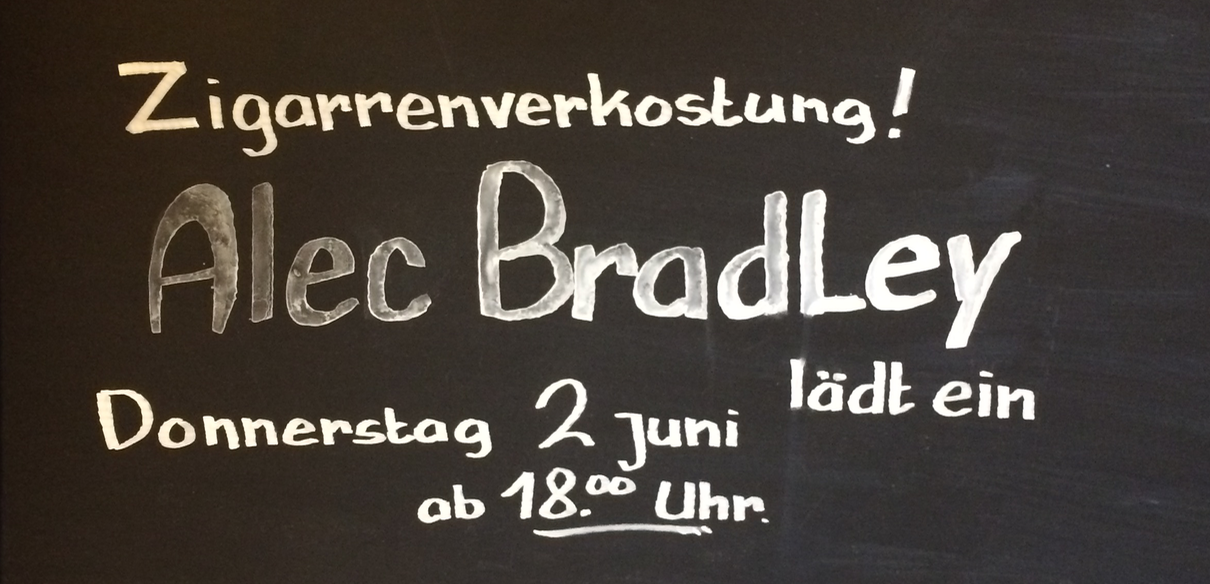 Zigarrenverkostung!
Alec Bradley
lädt ein
Donnerstag 2 Juni
ab 18.00 Uhr.